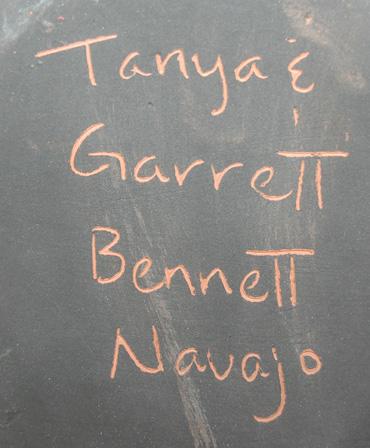 Tanya &
Garrett
Bennett
Navajo